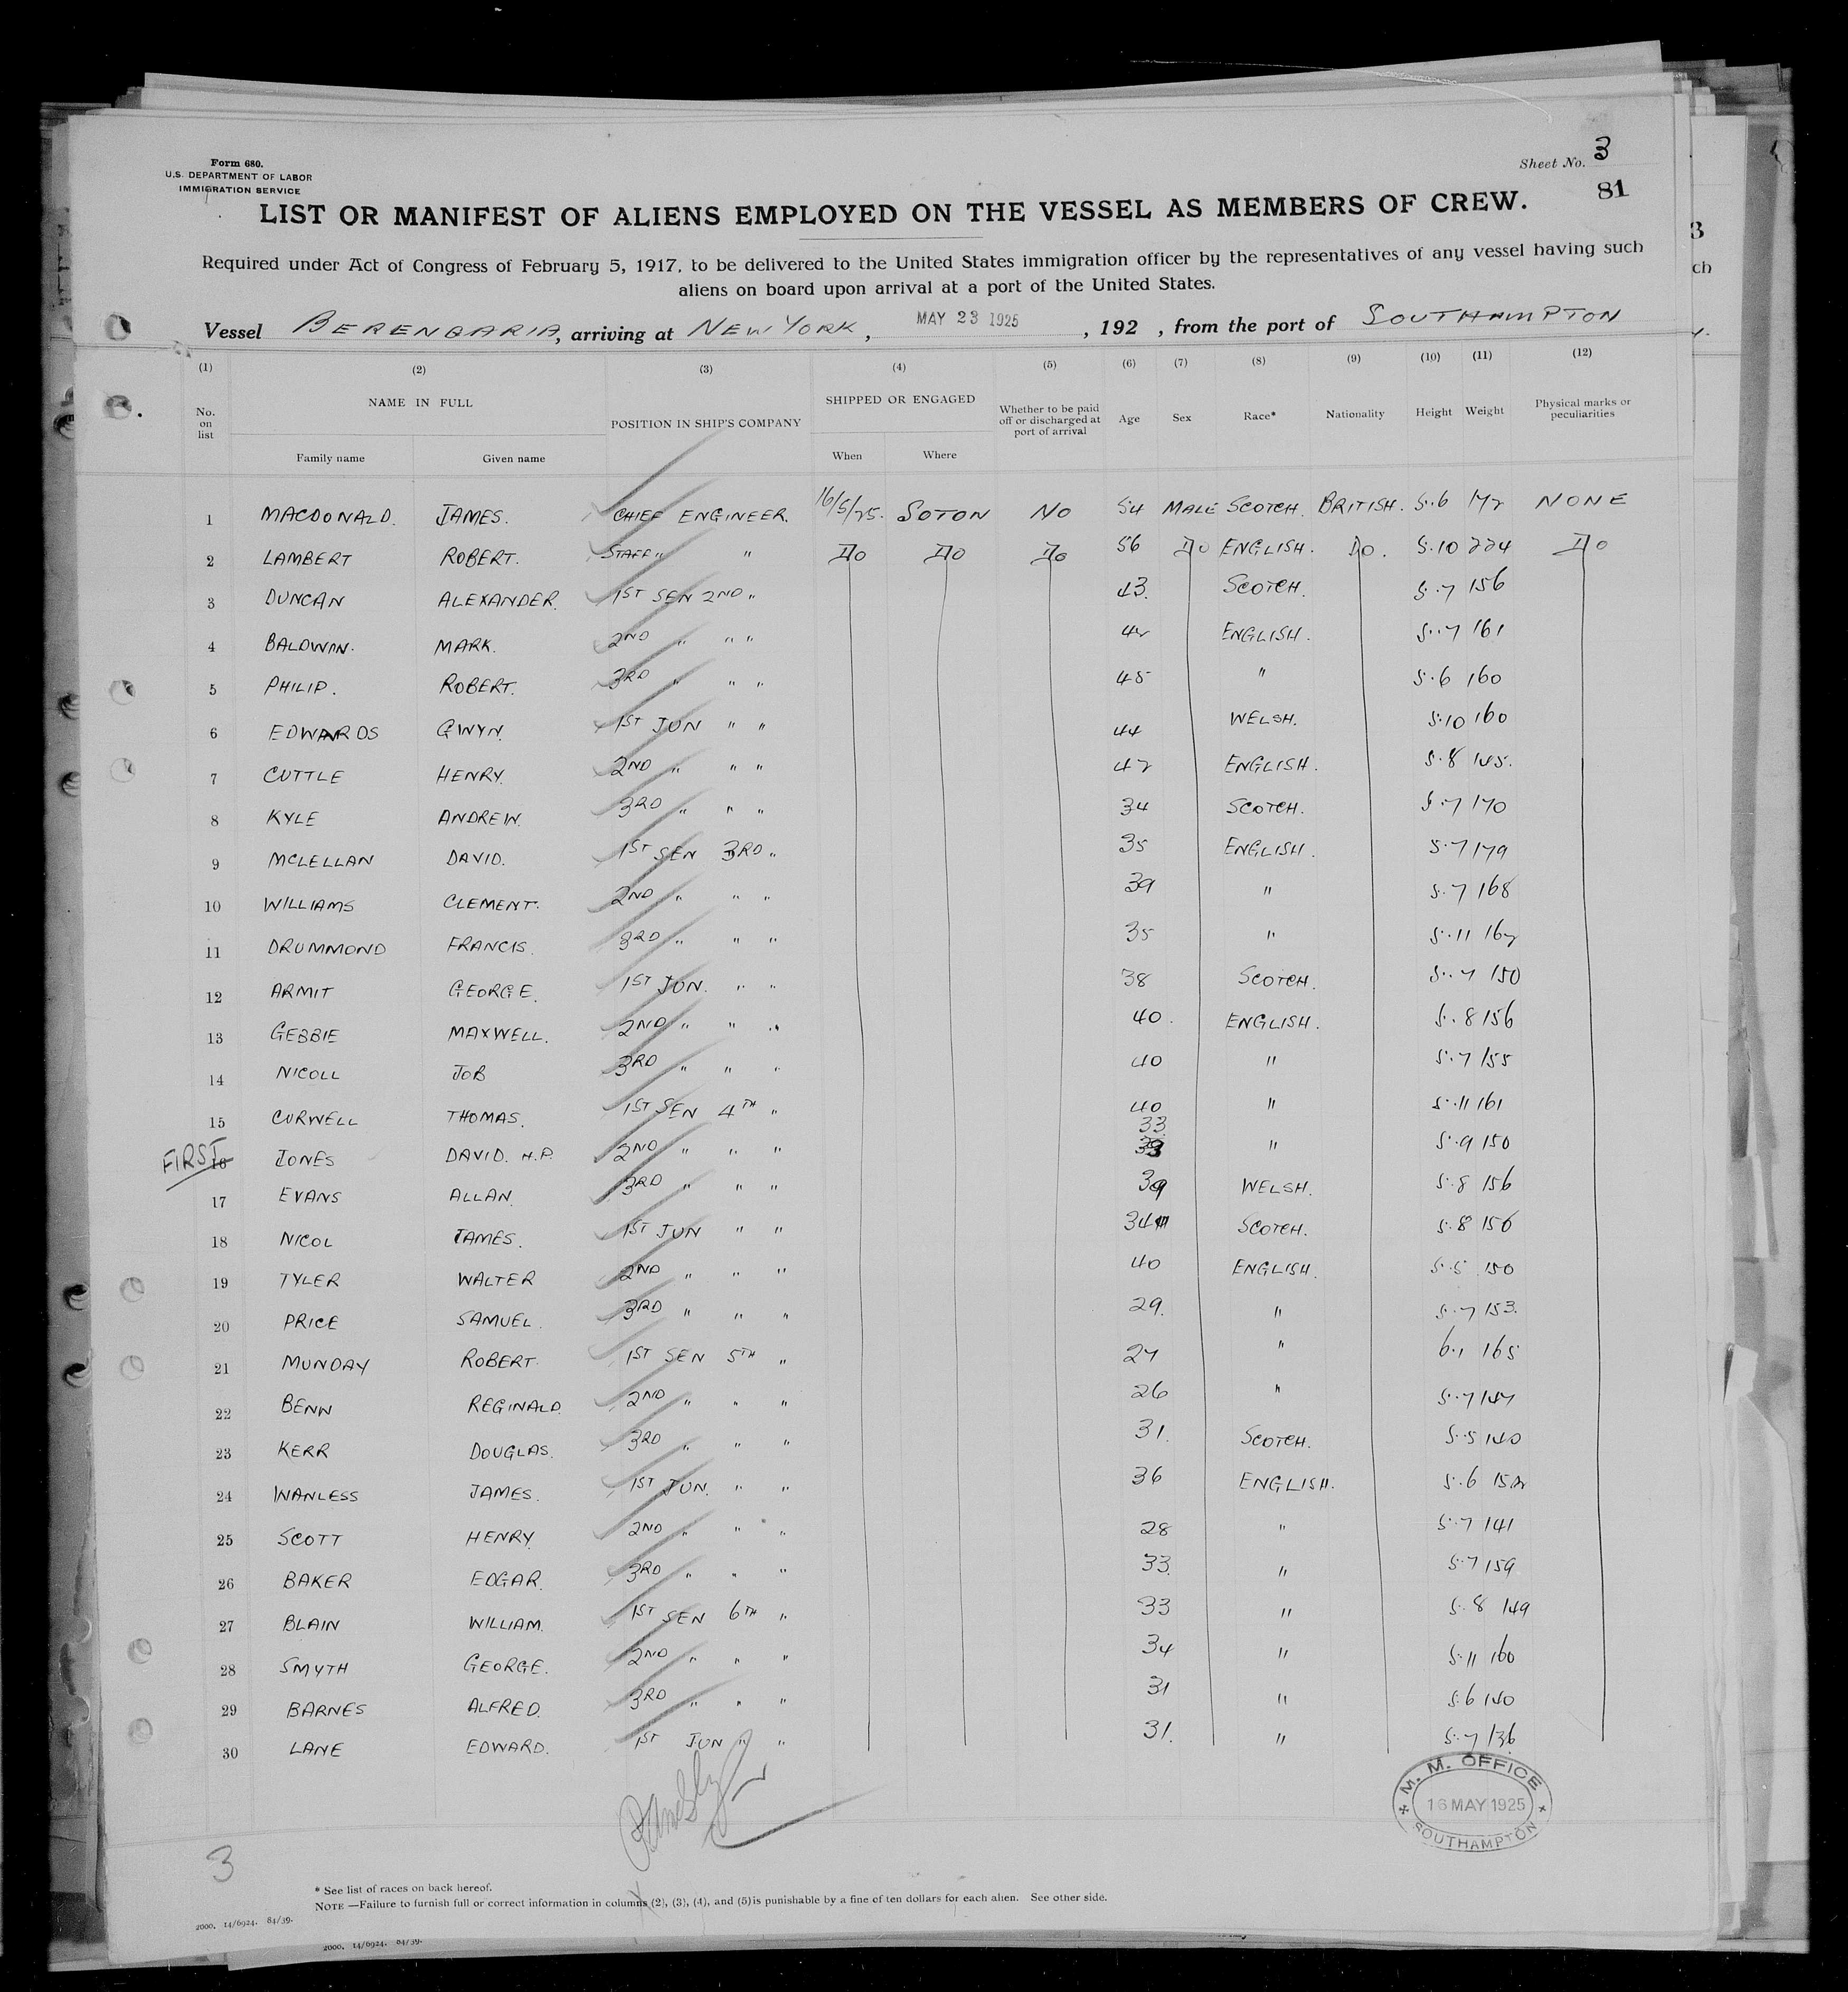 Form 680.
U.S. DEPARTMENT OF LABOR
IMMIGRATION SERVICE
Sheet No. 3
81
LIST OR MANIFEST OF ALIENS EMPLOYED ON THE VESSEL AS MEMBERS OF CREW.
Required under Act of Congress of February 5, 1917, to be delivered to the United States immigration officer by the representatives of any vessel having such
aliens on board upon arrival at a port of the United States.
Vessel BERENGARIA, arriving at NEW YORK, MAY 23 1925, 192 , from the port of SOUTHAMPTON
(1) (2) (3) (4) (5) (6) (7) (8) (9) (10) (11) (12)
No. on list NAME IN FULL POSITION IN SHIP'S COMPANY SHIPPED OR ENGAGED Whether to be paid off or discharged at port of arrival Age Sex Race* Nationality Height Weight Physical marks or peculiarities
Family name Given name When Where
1 MACDONALD. JAMES. CHIEF ENGINEER. 16/5/25. SOTON NO 54 MALE SCOTCH. BRITISH. 5.6 172 NONE
2 LAMBERT ROBERT. STAFF " " DO DO DO 56 DO ENGLISH. DO. 5.10 224 DO
3 DUNCAN ALEXANDER. 1ST SEN 2ND " 43. SCOTCH. 5.7 156
4 BALDWIN. MARK. 2ND " " " 42 ENGLISH. 5.7 161
5 PHILIP. ROBERT. 3RD " " " 45 " 5.6 160
6 EDWARDS GWYN. 1ST JUN " " 44 WELSH. 5.10 160
7 CUTTLE HENRY. 2ND " " " 42 ENGLISH. 5.8 145.
8 KYLE ANDREW. 3RD " " " 34 SCOTCH. 5.7 170
9 MCLELLAN DAVID. 1ST SEN 3RD " 35 ENGLISH. 5.7 179
10 WILLIAMS CLEMENT. 2ND " " " 39 " 5.7 168
11 DRUMMOND FRANCIS. 3RD " " " 35 " 5.11 162
12 ARMIT GEORGE. 1ST JUN. " " 38 SCOTCH. 5.7 150
13 GEBBIE MAXWELL. 2ND " " " 40. ENGLISH. 5.8 156
14 NICOLL JOB 3RD " " " 40 " 5.7 155
15 CURWELL THOMAS. 1ST SEN 4TH " 40 " 5.11 161
33
FIRST 16 JONES DAVID. H.P. 2ND " " " " 5.9 150
17 EVANS ALLAN. 3RD " " " 39 WELSH. 5.8 156
18 NICOL JAMES. 1ST JUN " " 34 SCOTCH. 5.8 156
19 TYLER WALTER 2ND " " " 40 ENGLISH. 5.5 150
20 PRICE SAMUEL. 3RD " " " 29. " 5.7 153.
21 MUNDAY ROBERT. 1ST SEN 5TH " 27 " 6.1 165
22 BENN REGINALD. 2ND " " " 26 " 5.7 147
23 KERR DOUGLAS. 3RD " " " 31. SCOTCH. 5.5 140
24 WANLESS JAMES. 1ST JUN. " " 36 ENGLISH. 5.6 152
25 SCOTT HENRY. 2ND " " " 28 " 5.7 141
26 BAKER EDGAR. 3RD " " " 33. " 5.7 159
27 BLAIN WILLIAM. 1ST SEN 6TH " 33 " 5.8 149
28 SMYTH GEORGE. 2ND " " " 34 " 5.11 160
29 BARNES ALFRED. 3RD " " " 31 " 5.6 140
30 LANE EDWARD. 1ST JUN " " 31. " 5.7 136
M. M. OFFICE
16 MAY 1925
SOUTHAMPTON
3
* See list of races on back hereof.
NOTE —Failure to furnish full or correct information in columns (2), (3), (4), and (5) is punishable by a fine of ten dollars for each alien. See other side.
2000. 14/6924. 84/39.
2000. 14/6924. 84/39.